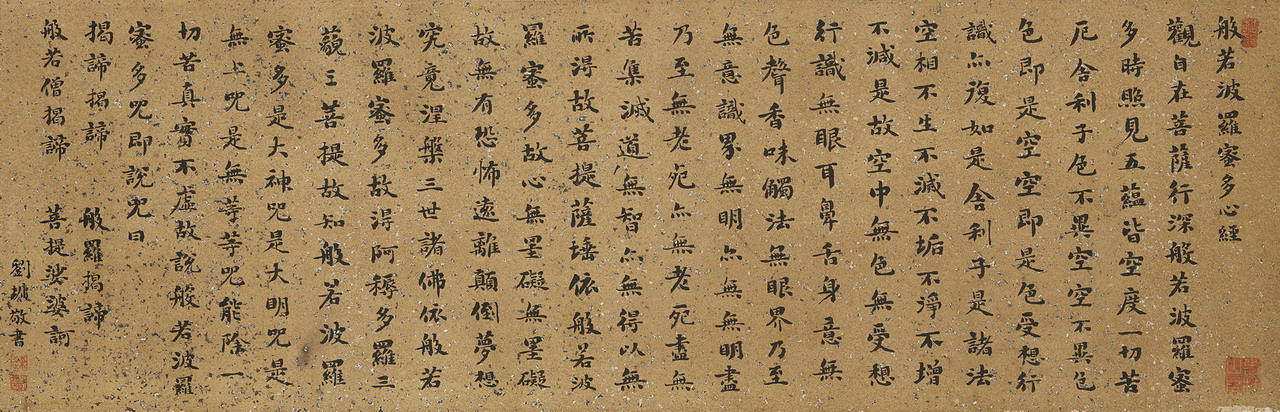 般若波羅蜜多心經
觀自在菩薩行深般若波羅蜜
多時照見五蘊皆空度一切苦
厄舍利子色不異空空不異色
色即是空空即是色受想行
識亦復如是舍利子是諸法
空相不生不滅不垢不淨不增
不減是故空中無色無受想
行識無眼耳鼻舌身意無
色聲香味觸法無眼界乃至
無意識界無明亦無無明盡
乃至無老死亦無老死盡無
苦集滅道無智亦無得以無
所得故菩提薩埵依般若波
羅蜜多故心無罣礙無罣礙
故無有恐怖遠離顛倒夢想
究竟涅槃三世諸佛依般若
波羅蜜多故得阿耨多羅三
藐三菩提故知般若波羅
蜜多是大神咒是大明咒是
無上咒是無等等咒能除一
切苦真實不虛故說般若波羅
蜜多咒即說咒曰
揭諦揭諦 般羅揭諦
般若僧揭諦 菩提娑婆訶
劉墉敬書